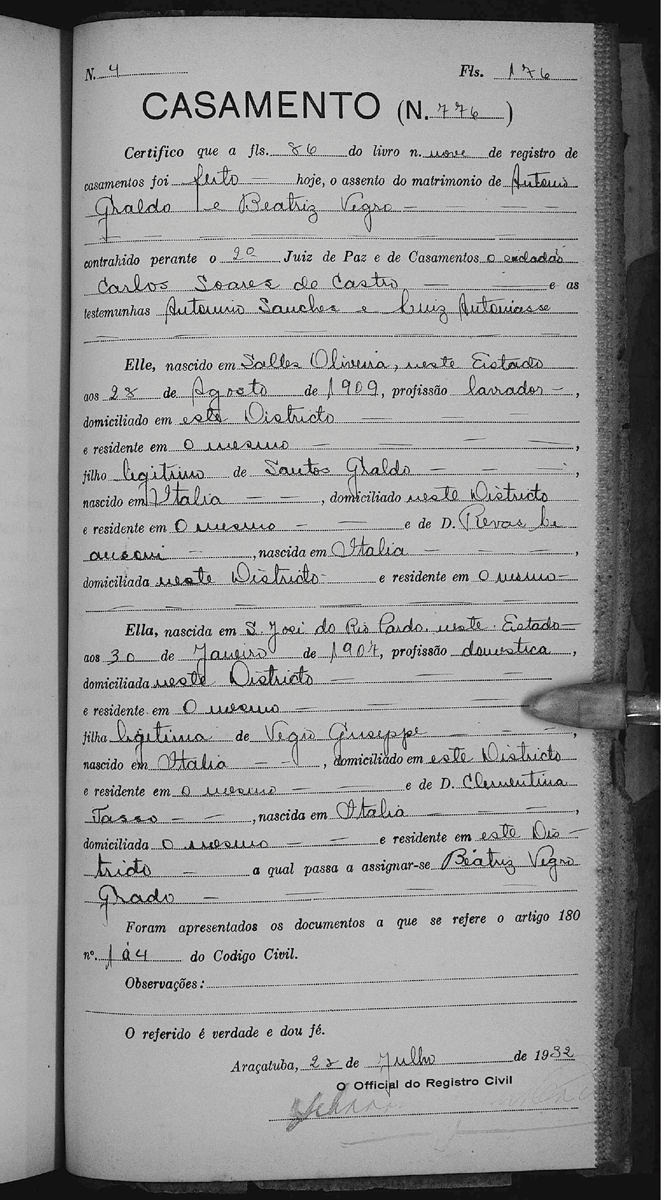 N. 4 Fls. 176
CASAMENTO (N. 776)
Certifico que a fls. 86 do livro n. nove de registro de
casamentos foi feito — hoje, o assento do matrimonio de Antonio
Graldo e Beatriz Vegro — — — —
contrahido perante o 2º Juiz de Paz e de Casamentos o cidadão
Carlos Soares de Castro — — e as
testemunhas Antonio Sanches e Luiz Antoniasse
Elle, nascido em Salles Oliveira, neste Estado
aos 28 de Agosto de 1909, profissão lavrador —,
domiciliado em este Districto — — — —
e residente em o mesmo — — — —,
filho legitimo de Santos Graldo — — —,
nascido em Italia — —, domiciliado neste Districto
e residente em o mesmo — — e de D.
—, nascida em Italia — — —,
domiciliada neste Districto — e residente em o mesmo —
— — — — — —
Ella, nascida em S. José do Rio Pardo, neste Estado —
aos 30 de Janeiro de 1904, profissão domestica,
domiciliada neste Districto — — — —
e residente em o mesmo — — — —
filha legitima de Vegro Giuseppe — — —,
nascido em Italia — —, domiciliado em este Districto
e residente em o mesmo — — e de D. Clementina
Tasso — —, nascida em Italia — — —,
domiciliada o mesmo — — e residente em este Dis-
tricto — — a qual passa a assignar-se Beatriz Vegro
Grado — — — — —
Foram apresentados os documentos a que se refere o artigo 180
nº. 1 á 4 do Codigo Civil.
Observações:
O referido é verdade e dou fé.
Araçatuba, 23 de Julho de 1932
O Official do Registro Civil